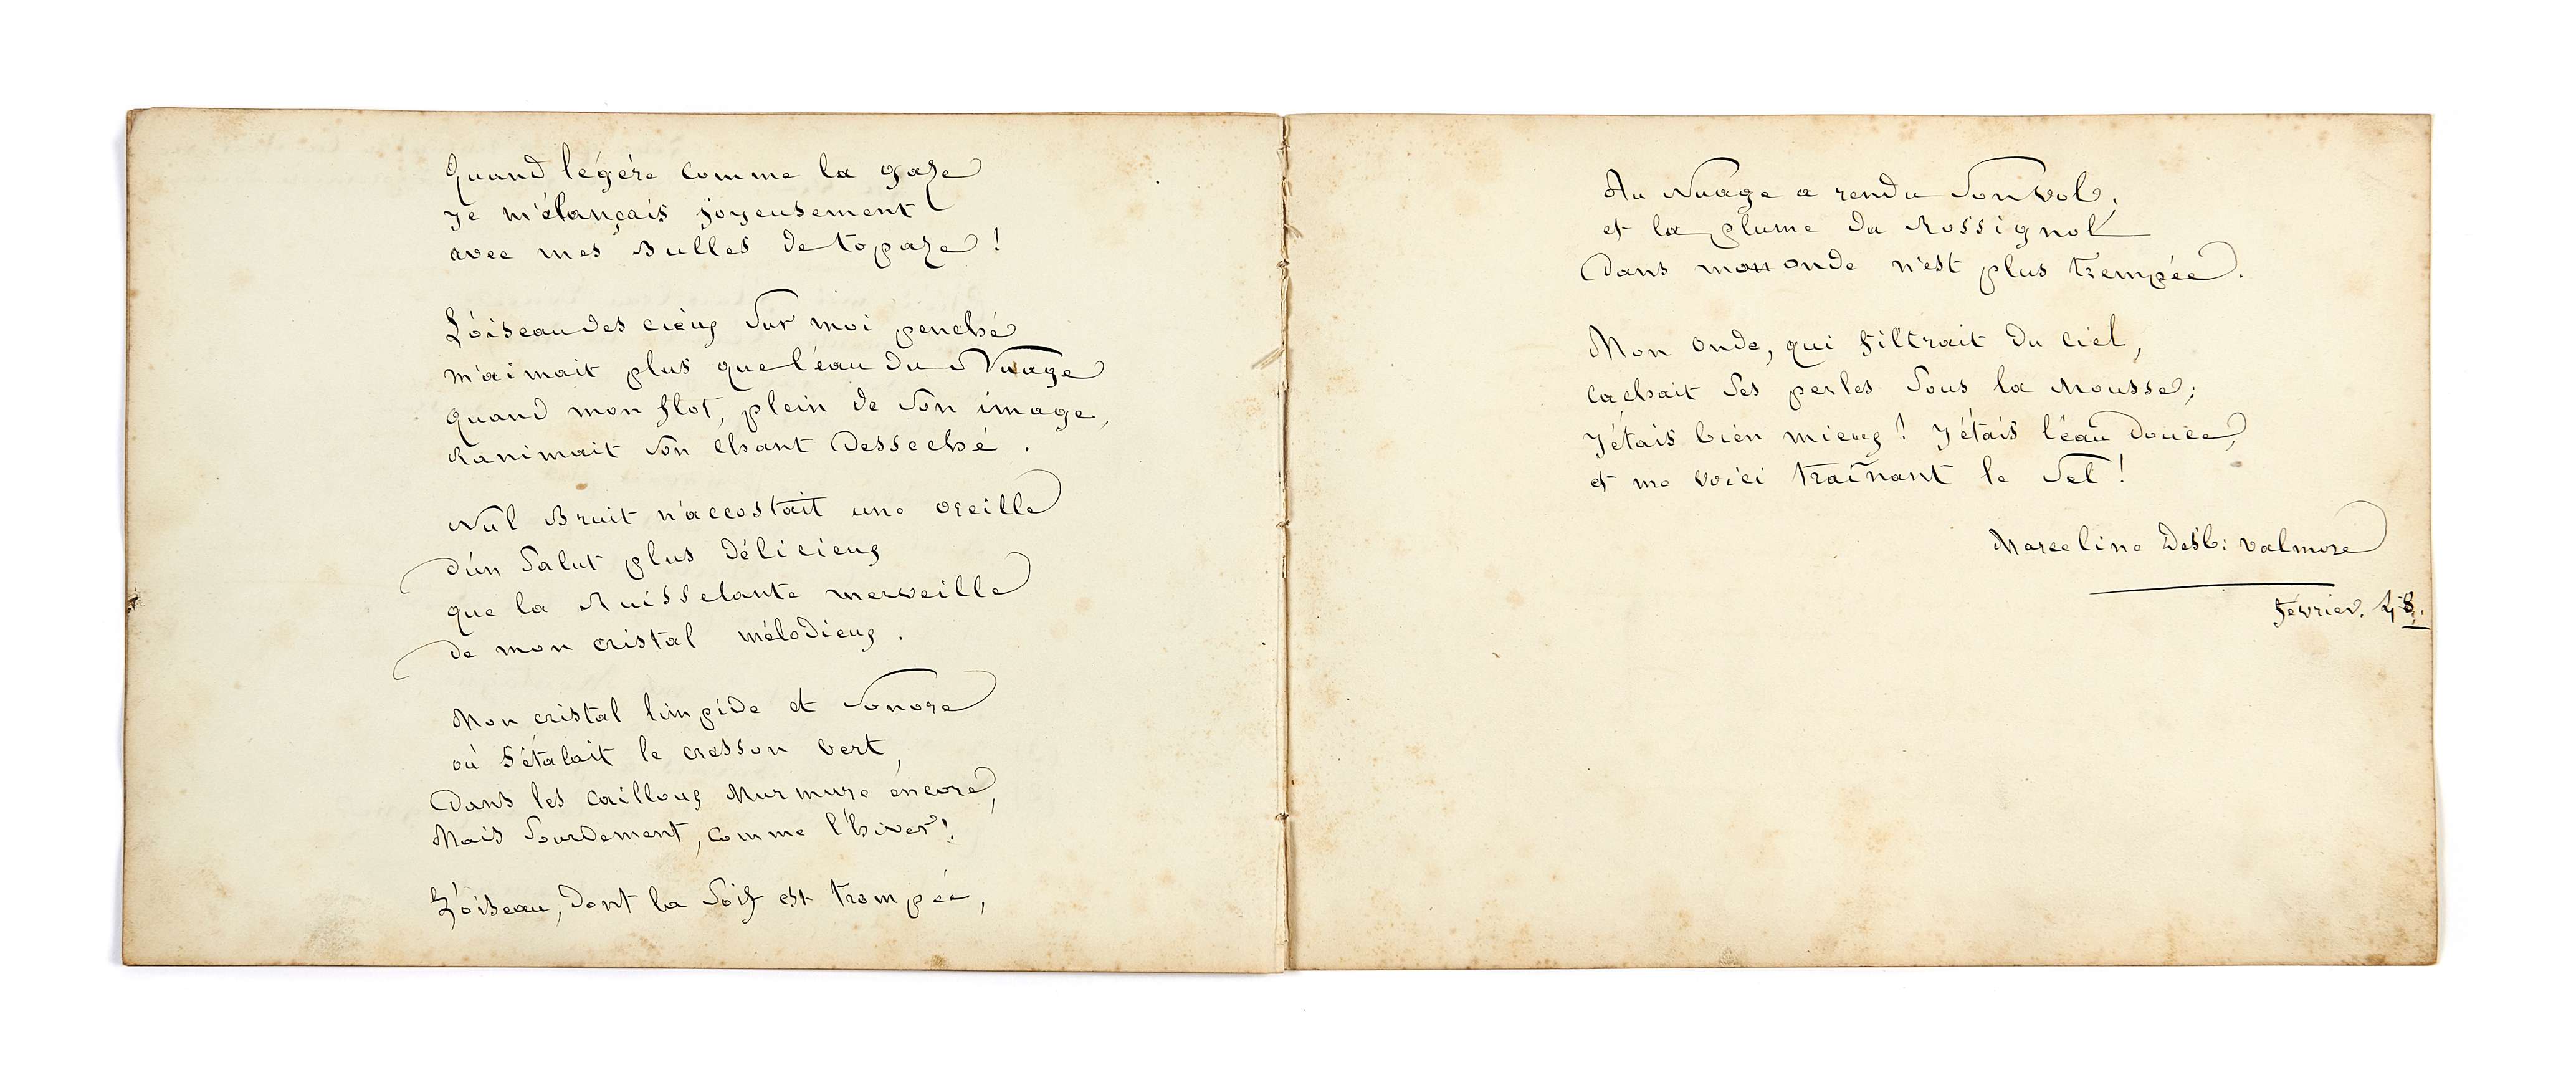 Quand légère comme la gaze
Je m'élançais joyeusement
avec mes Bulles de topaze !
L'oiseau des cieux Sur moi penché
m'aimait plus que l'eau du Nuage
quand mon flot, plein de Son image,
Ranimait Son Chant Desseché .
Nul Bruit n'accostait une oreille
d'un Salut plus Délicieux
que la Ruisselante merveille
de mon cristal mélodieux .
Mon cristal limpide et Sonore
où s'étalait le cresson vert,
Dans les cailloux Murmure encore,
Mais Sourdement, comme l'hiver !
L'oiseau, dont la Soif est trompée,
Au Nuage a rendu Son vol ;
et la plume du Rossignol
Dans mon onde n'est plus trempée .
Mon onde, qui filtrait du ciel,
cachait Ses perles Sous la Mousse ;
J'étais bien mieux ! J'étais l'eau douce,
et me voici traînant le Sel !
Marceline Desb: valmore
février. 48.